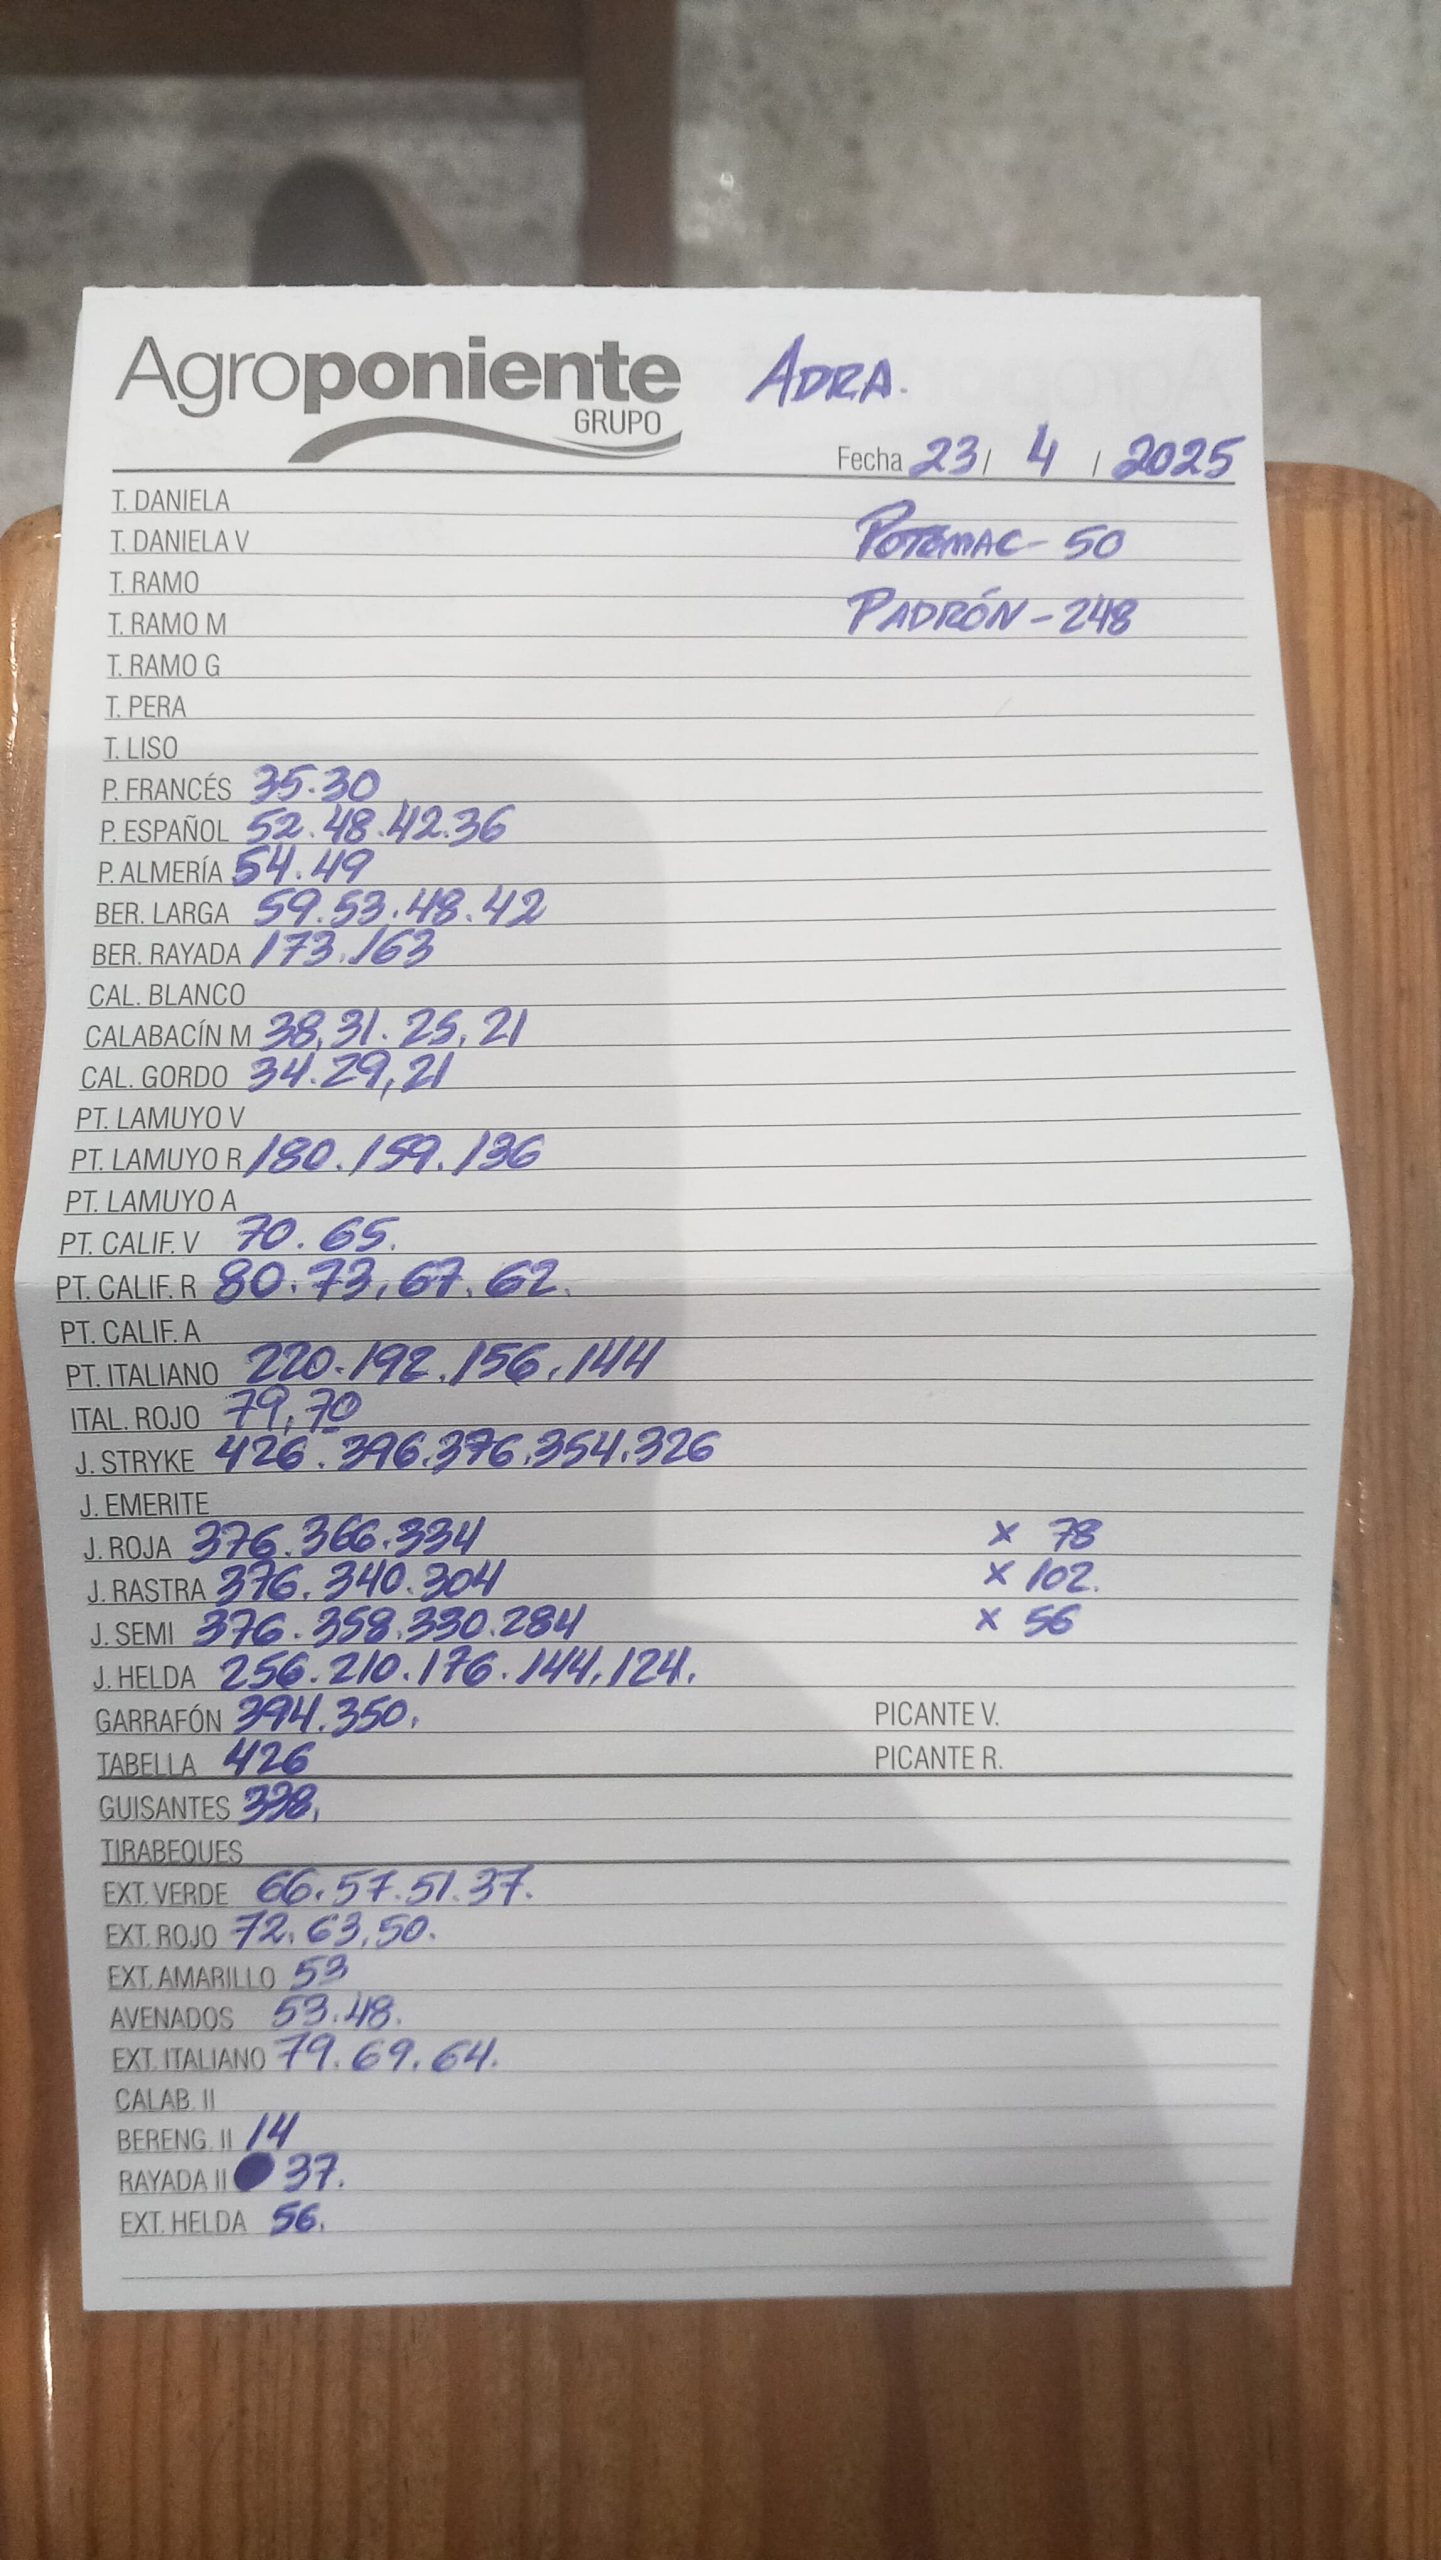 Agroponiente ADRA.
GRUPO
Fecha 23/ 4 / 2025
T. DANIELA
T. DANIELA V POTOMAC - 50
T. RAMO
T. RAMO M PADRÓN - 248
T. RAMO G
T. PERA
T. LISO
P. FRANCÉS 35.30
P. ESPAÑOL 52.48.42.36
P. ALMERÍA 54.49
BER. LARGA 59.53.48.42
BER. RAYADA 173.163
CAL. BLANCO
CALABACÍN M 38,31.25,21
CAL. GORDO 34.29,21
PT. LAMUYO V
PT. LAMUYO R 180.159.136
PT. LAMUYO A
PT. CALIF. V 70.65.
PT. CALIF. R 80.73,67.62.
PT. CALIF. A
PT. ITALIANO 220.192.156.144
ITAL. ROJO 79,70
J. STRYKE 426.396.376.354.326
J. EMERITE
J. ROJA 376.366.334 x 78
J. RASTRA 376.340.304 x 102.
J. SEMI 376.358.330.284 x 56
J. HELDA 256.210.176.144,124.
GARRAFÓN 394.350. PICANTE V.
TABELLA 426 PICANTE R.
GUISANTES
TIRABEQUES
EXT. VERDE 66.57.51.37.
EXT. ROJO 72.63,50.
EXT. AMARILLO 53
AVENADOS 53.48.
EXT. ITALIANO 79.69.64.
CALAB. II
BERENG. II 14
RAYADA II 37.
EXT. HELDA 56.